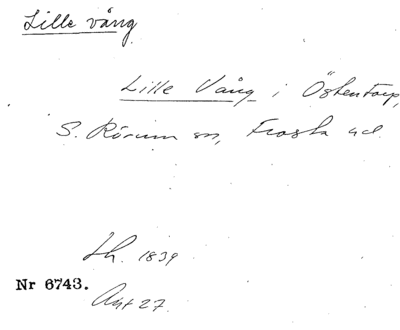 Lille vång
Lille Vång i Östentorp,
S. Rörum sn, Frosta hd.
Lh. 1839
Nr 6743.
Akt 27.